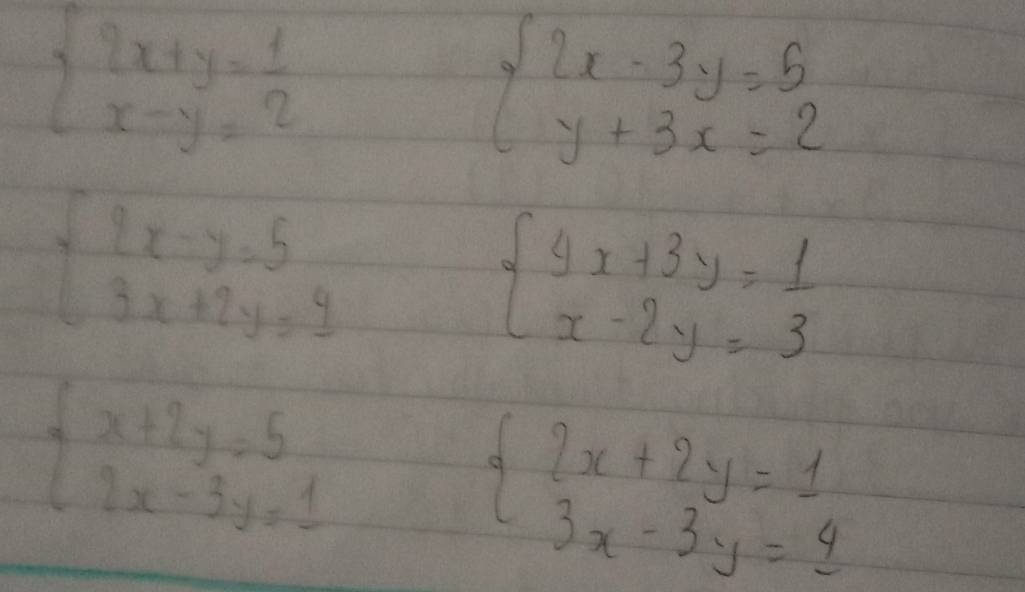 2x+y=1
x-y=2
2x-3y=5
y+3x=2
2x-y=5
3x+2y=4
4x+3y=1
x-2y=3
x+2y=5
2x-3y=1
2x+2y=1
3x-3y=4